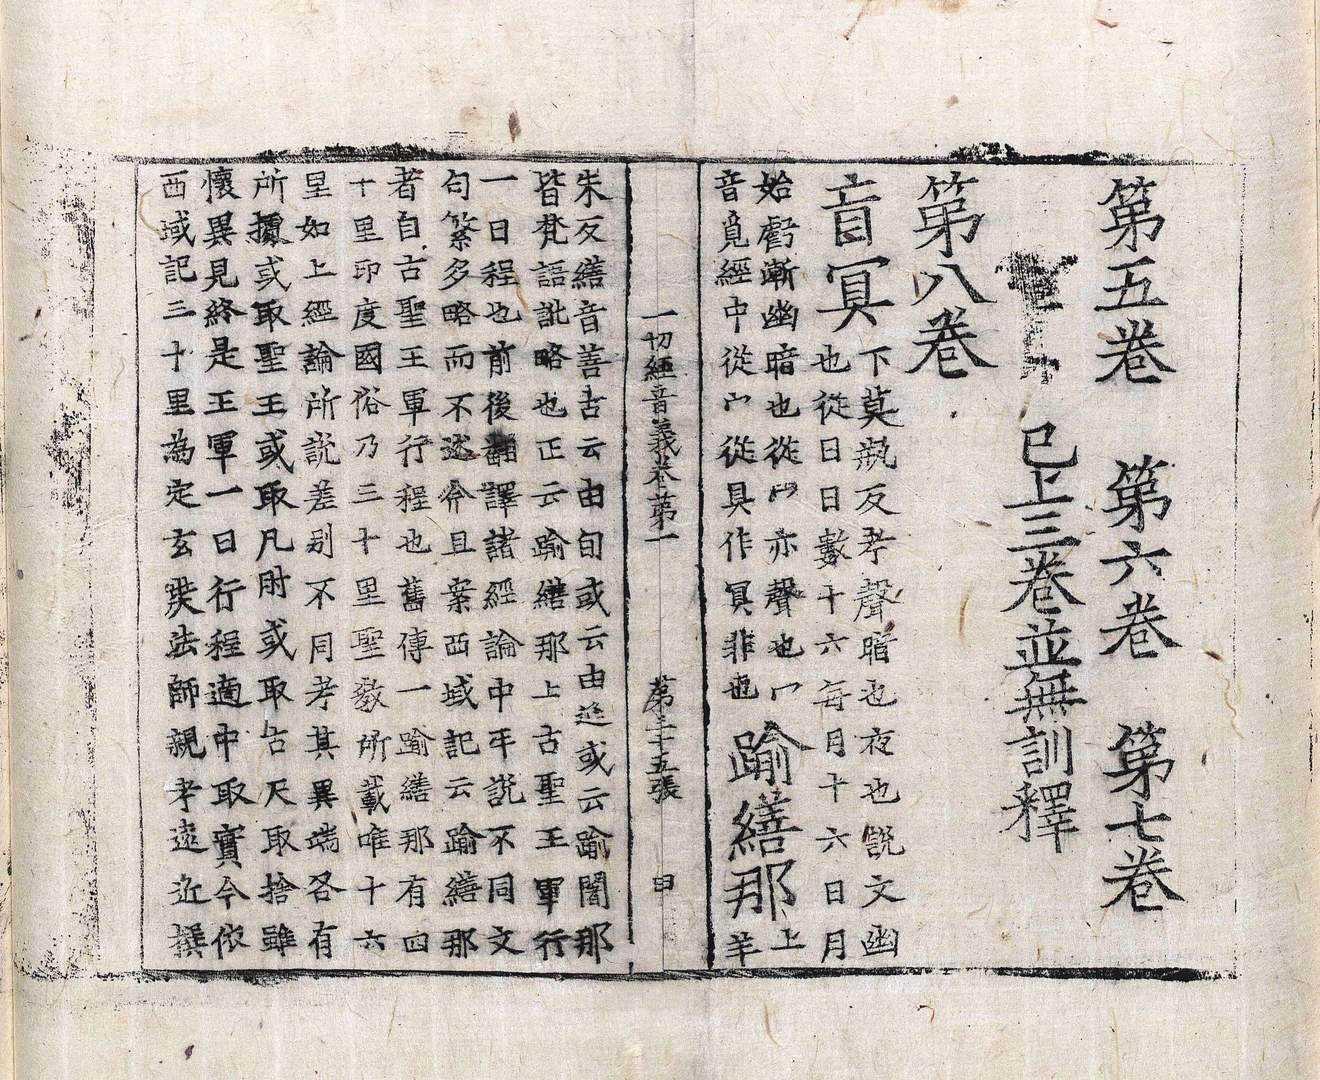 第五卷　第六卷　第七卷
已上三卷並無訓釋
第八卷
盲冥
下莫瓶反考聲暗也夜也說文幽
也從日日數十六每月十六日月
始虧漸幽暗也從冖冖亦聲也冖
音覓經中從宀從具作冥非也
踰繕那
上
羊
一切經音義卷第一　第三十五張　申
朱反繕音善古云由旬或云由延或云踰闍那
皆梵語訛略也正云踰繕那上古聖王軍行
一日程也前後翻譯諸經論中平說不同文
句繁多略而不述令且案西域記云踰繕那
者自古聖王軍行程也舊傳一踰繕那有四
十里印度國俗乃三十里聖教所載唯十六
里如上經論所說差別不同考其異端各有
所據或取聖王或取凡肘或取古尺取捨雖
懷異見終是王軍一日行程適中取實今依
西域記三十里為定玄奘法師親考遠近撰